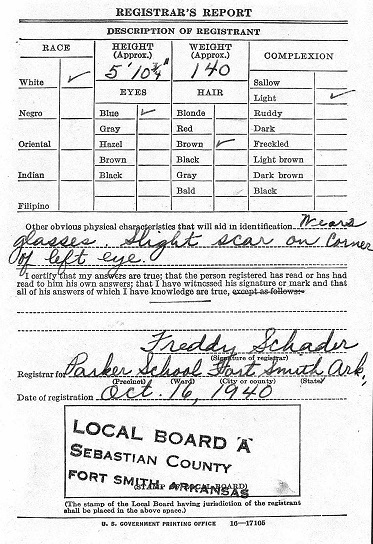 REGISTRAR'S REPORT
DESCRIPTION OF REGISTRANT
RACE
HEIGHT (Approx.)
WEIGHT (Approx.)
COMPLEXION
5' 10 3/4"
140
White ✓
EYES
HAIR
Sallow
Light ✓
Negro
Blue ✓
Blonde
Ruddy
Gray
Red
Dark
Oriental
Hazel
Brown ✓
Freckled
Brown
Black
Light brown
Indian
Black
Gray
Dark brown
Bald
Black
Filipino
Other obvious physical characteristics that will aid in identification Wears
glasses. Slight scar on Corner
of left eye.
I certify that my answers are true; that the person registered has read or has had
read to him his own answers; that I have witnessed his signature or mark and that
all of his answers of which I have knowledge are true, except as follows:
Freddy Schader
(Signature of registrar)
Registrar for Parker School Fort Smith Ark.
(Precinct) (Ward) (City or county) (State)
Date of registration Oct. 16, 1940
LOCAL BOARD "A"
SEBASTIAN COUNTY
FORT SMITH, ARKANSAS
(STAMP OF LOCAL BOARD)
(The stamp of the Local Board having jurisdiction of the registrant
shall be placed in the above space.)
U. S. GOVERNMENT PRINTING OFFICE 16—17105